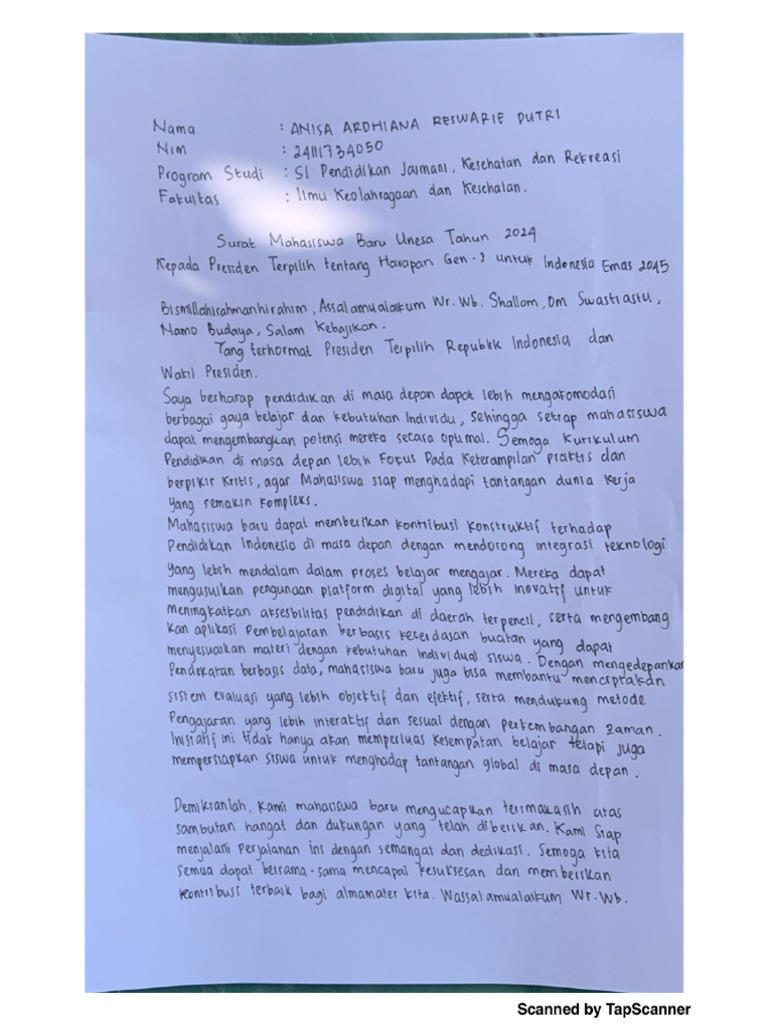 Nama : ANISA ARDHIANA RESWARIE PUTRI
Nim : 24111734050
Program Studi : S1 Pendidikan Jasmani, Kesehatan dan Rekreasi
Fakultas : Ilmu Keolahragaan dan Kesehatan.
Surat Mahasiswa Baru Unesa Tahun 2024
Kepada Presiden Terpilih tentang Harapan Gen-Z untuk Indonesia Emas 2045
Bismillahirahmanhirahim, Assalamualaikum Wr. Wb. Shallom, Om Swastiastu,
Namo Budaya, Salam Kebajikan.
Yang terhormat Presiden Terpilih Republik Indonesia dan
Wakil Presiden.
Saya berharap pendidikan di masa depan dapat lebih mengakomodasi
berbagai gaya belajar dan kebutuhan Individu, sehingga setiap mahasiswa
dapat mengembangkan potensi mereka secara optimal. Semoga Kurikulum
Pendidikan di masa depan lebih Fokus Pada Keterampilan praktis dan
berpikir Kritis, agar Mahasiswa siap menghadapi tantangan dunia Kerja
yang semakin Kompleks.
Mahasiswa baru dapat memberikan Kontribusi Konstruktif terhadap
Pendidikan Indonesia di masa depan dengan mendorong integrasi teknologi
yang lebih mendalam dalam proses belajar mengajar. Mereka dapat
mengusulkan pengunaan platform digital yang lebih Inovatif untuk
meningkatkan aksesbilitas pendidikan di daerah terpencil, serta mengembang
kan aplikasi Pembelajaran berbasis kecerdasan buatan yang dapat
menyesuaikan materi dengan kebutuhan Individual siswa. Dengan mengedepankan
Pendekatan berbasis data, mahasiswa baru juga bisa membantu menciptakan
sistem evaluasi yang lebih objektif dan efektif, serta mendukung metode
Pengajaran yang lebih interaktif dan sesuai dengan perkembangan zaman.
Inisiatif ini tidak hanya akan memperluas kesempatan belajar tetapi juga
mempersiapkan siswa untuk menghadap tantangan global di masa depan.
Demikianlah, Kami mahasiswa baru mengucapkan terimakasih atas
sambutan hangat dan dukungan yang telah diberikan. Kami Siap
menjalani Perjalanan ini dengan semangat dan dedikasi. Semoga kita
Semua dapat bersama-sama mencapai kesuksesan dan memberikan
Kontribusi terbaik bagi almamater kita. Wassalamualaikum Wr. Wb.
Scanned by TapScanner